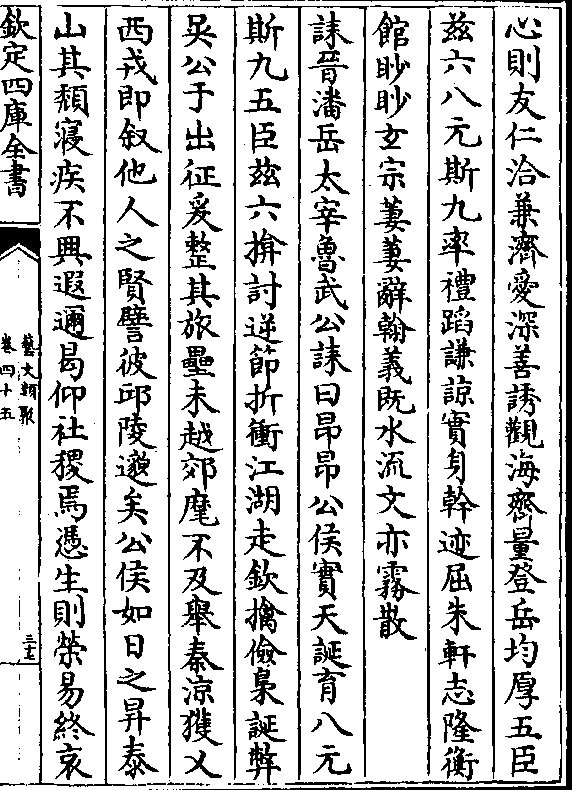 心則友仁洽兼濟愛深善誘觀海齊量登岳均厚五臣
兹六八元斯九率禮蹈謙諒實身幹迹屈朱軒志隆衡
館眇眇玄宗萋萋辭翰義既水流文亦霧散
誄晉潘岳太宰魯武公誄曰昂昂公侯實天誕育八元
斯九五臣兹六揜討逆節折衝江湖走欽擒儉梟誕弊
吳公于出征爰整其旅壘未越郊麾不及舉秦涼獲乂
西戎即叙他人之賢譬彼邱陵邈矣公侯如日之昇泰
山其頹寢疾不興遐邇曷仰社稷焉憑生則榮易終哀
欽定四庫全書
藝文類聚
卷四十五
三十五